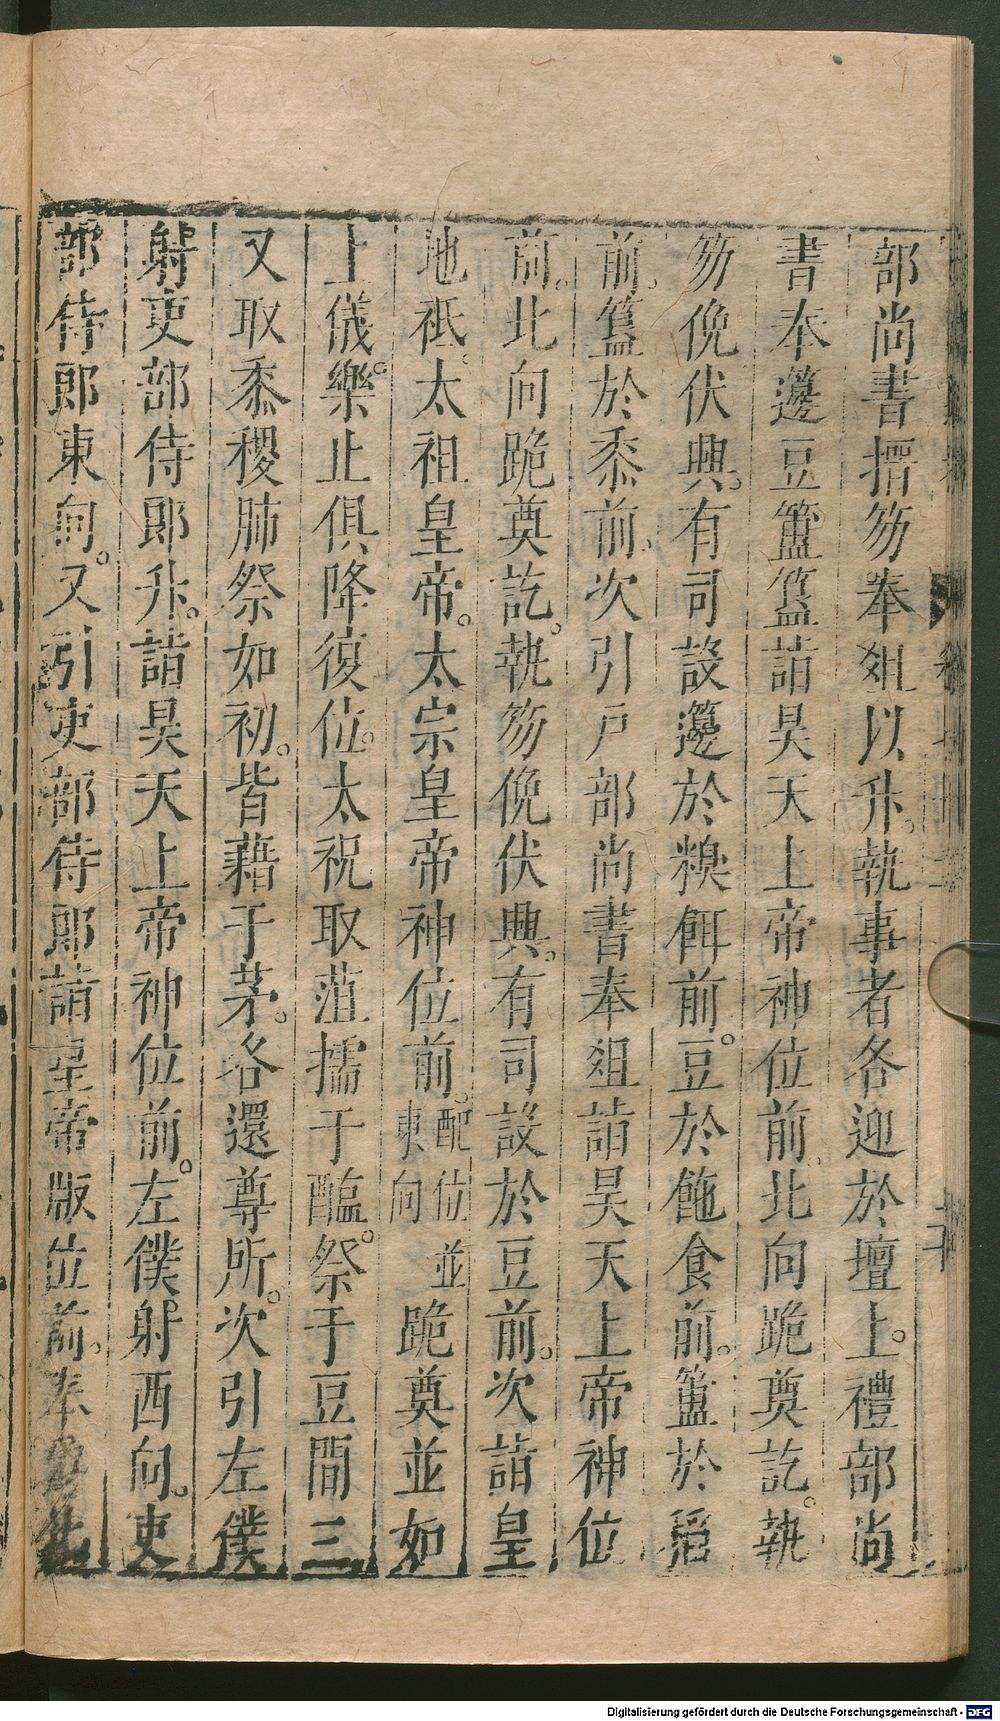 部尚書搢笏奉俎以升。執事者各迎於壇上。禮部尚
書奉籩豆簠簋詣昊天上帝神位前、北向跪奠訖。執
笏俛伏興。有司設籩於糗餌前。豆於醓食前。簠於稻
前。簋於黍前。次引戶部尚書奉俎詣昊天上帝神位
前。北向跪奠訖。執笏俛伏興。有司設於豆前。次詣皇
地祇、太祖皇帝。太宗皇帝神位前。配位並東向跪奠並如
上儀。樂止俱降復位。太祝取菹擩于醢。祭于豆間三
又取黍稷肺祭如初。皆藉于茅。各還尊所。次引左僕
射吏部侍郎升。詣昊天上帝神位前。左僕射西向。吏
部侍郎東向。又引吏部侍郎詣皇帝版位前。奉
Digitalisierung gefördert durch die Deutsche Forschungsgemeinschaft - DFG